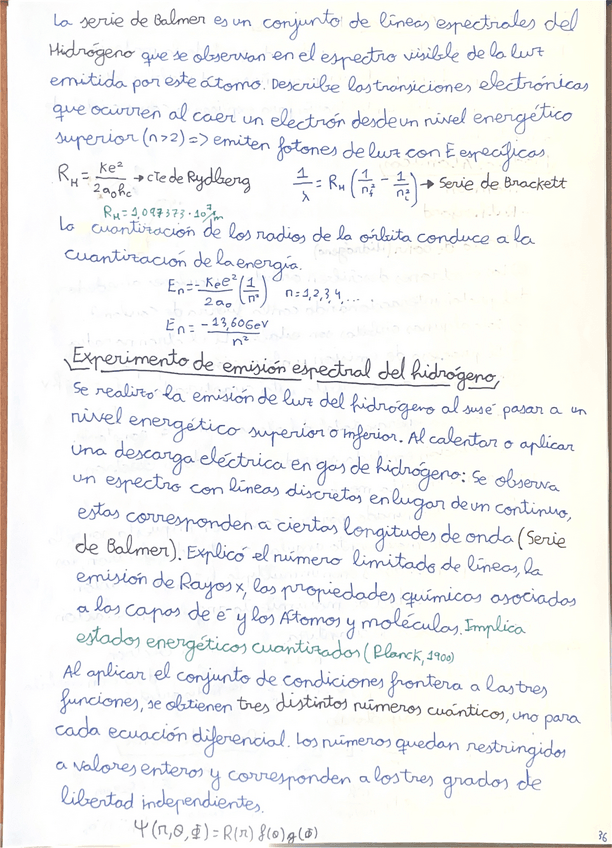 La serie de Balmer es un conjunto de líneas espectrales del
Hidrógeno que se observan en el espectro visible de la luz
emitida por este átomo. Describe las transiciones electrónicas
que ocurren al caer un electrón desde un nivel energético
superior (n>2) => emiten fotones de luz con E específicas.
R_H = ke²/2a₀hc → cte de Rydberg 1/λ = R_H (1/n_f² - 1/n_i²) → Serie de Brackett
R_H = 1,097373·10⁷/m
La cuantización de los radios de la órbita conduce a la
cuantización de la energía.
E_n = -k_e e²/2a₀ (1/n²) n=1,2,3,4,...
E_n = -13,606eV/n²
Experimento de emisión espectral del hidrógeno
Se realizó la emisión de luz del hidrógeno al su e⁻ pasar a un
nivel energético superior o inferior. Al calentar o aplicar
una descarga eléctrica en gas de hidrógeno: Se observa
un espectro con líneas discretas en lugar de un continuo,
estas corresponden a ciertas longitudes de onda (Serie
de Balmer). Explicó el número limitado de líneas, la
emisión de Rayos x, las propiedades químicas asociadas
a las capas de e⁻ y los Átomos y moléculas. Implica
estados energéticos cuantizados (Planck, 1900)
Al aplicar el conjunto de condiciones frontera a las tres
funciones, se obtienen tres distintos números cuánticos, uno para
cada ecuación diferencial. Los números quedan restringidos
a valores enteros y corresponden a los tres grados de
libertad independientes.
Ψ(r,θ,Φ) = R(r) f(θ) g(Φ)
36